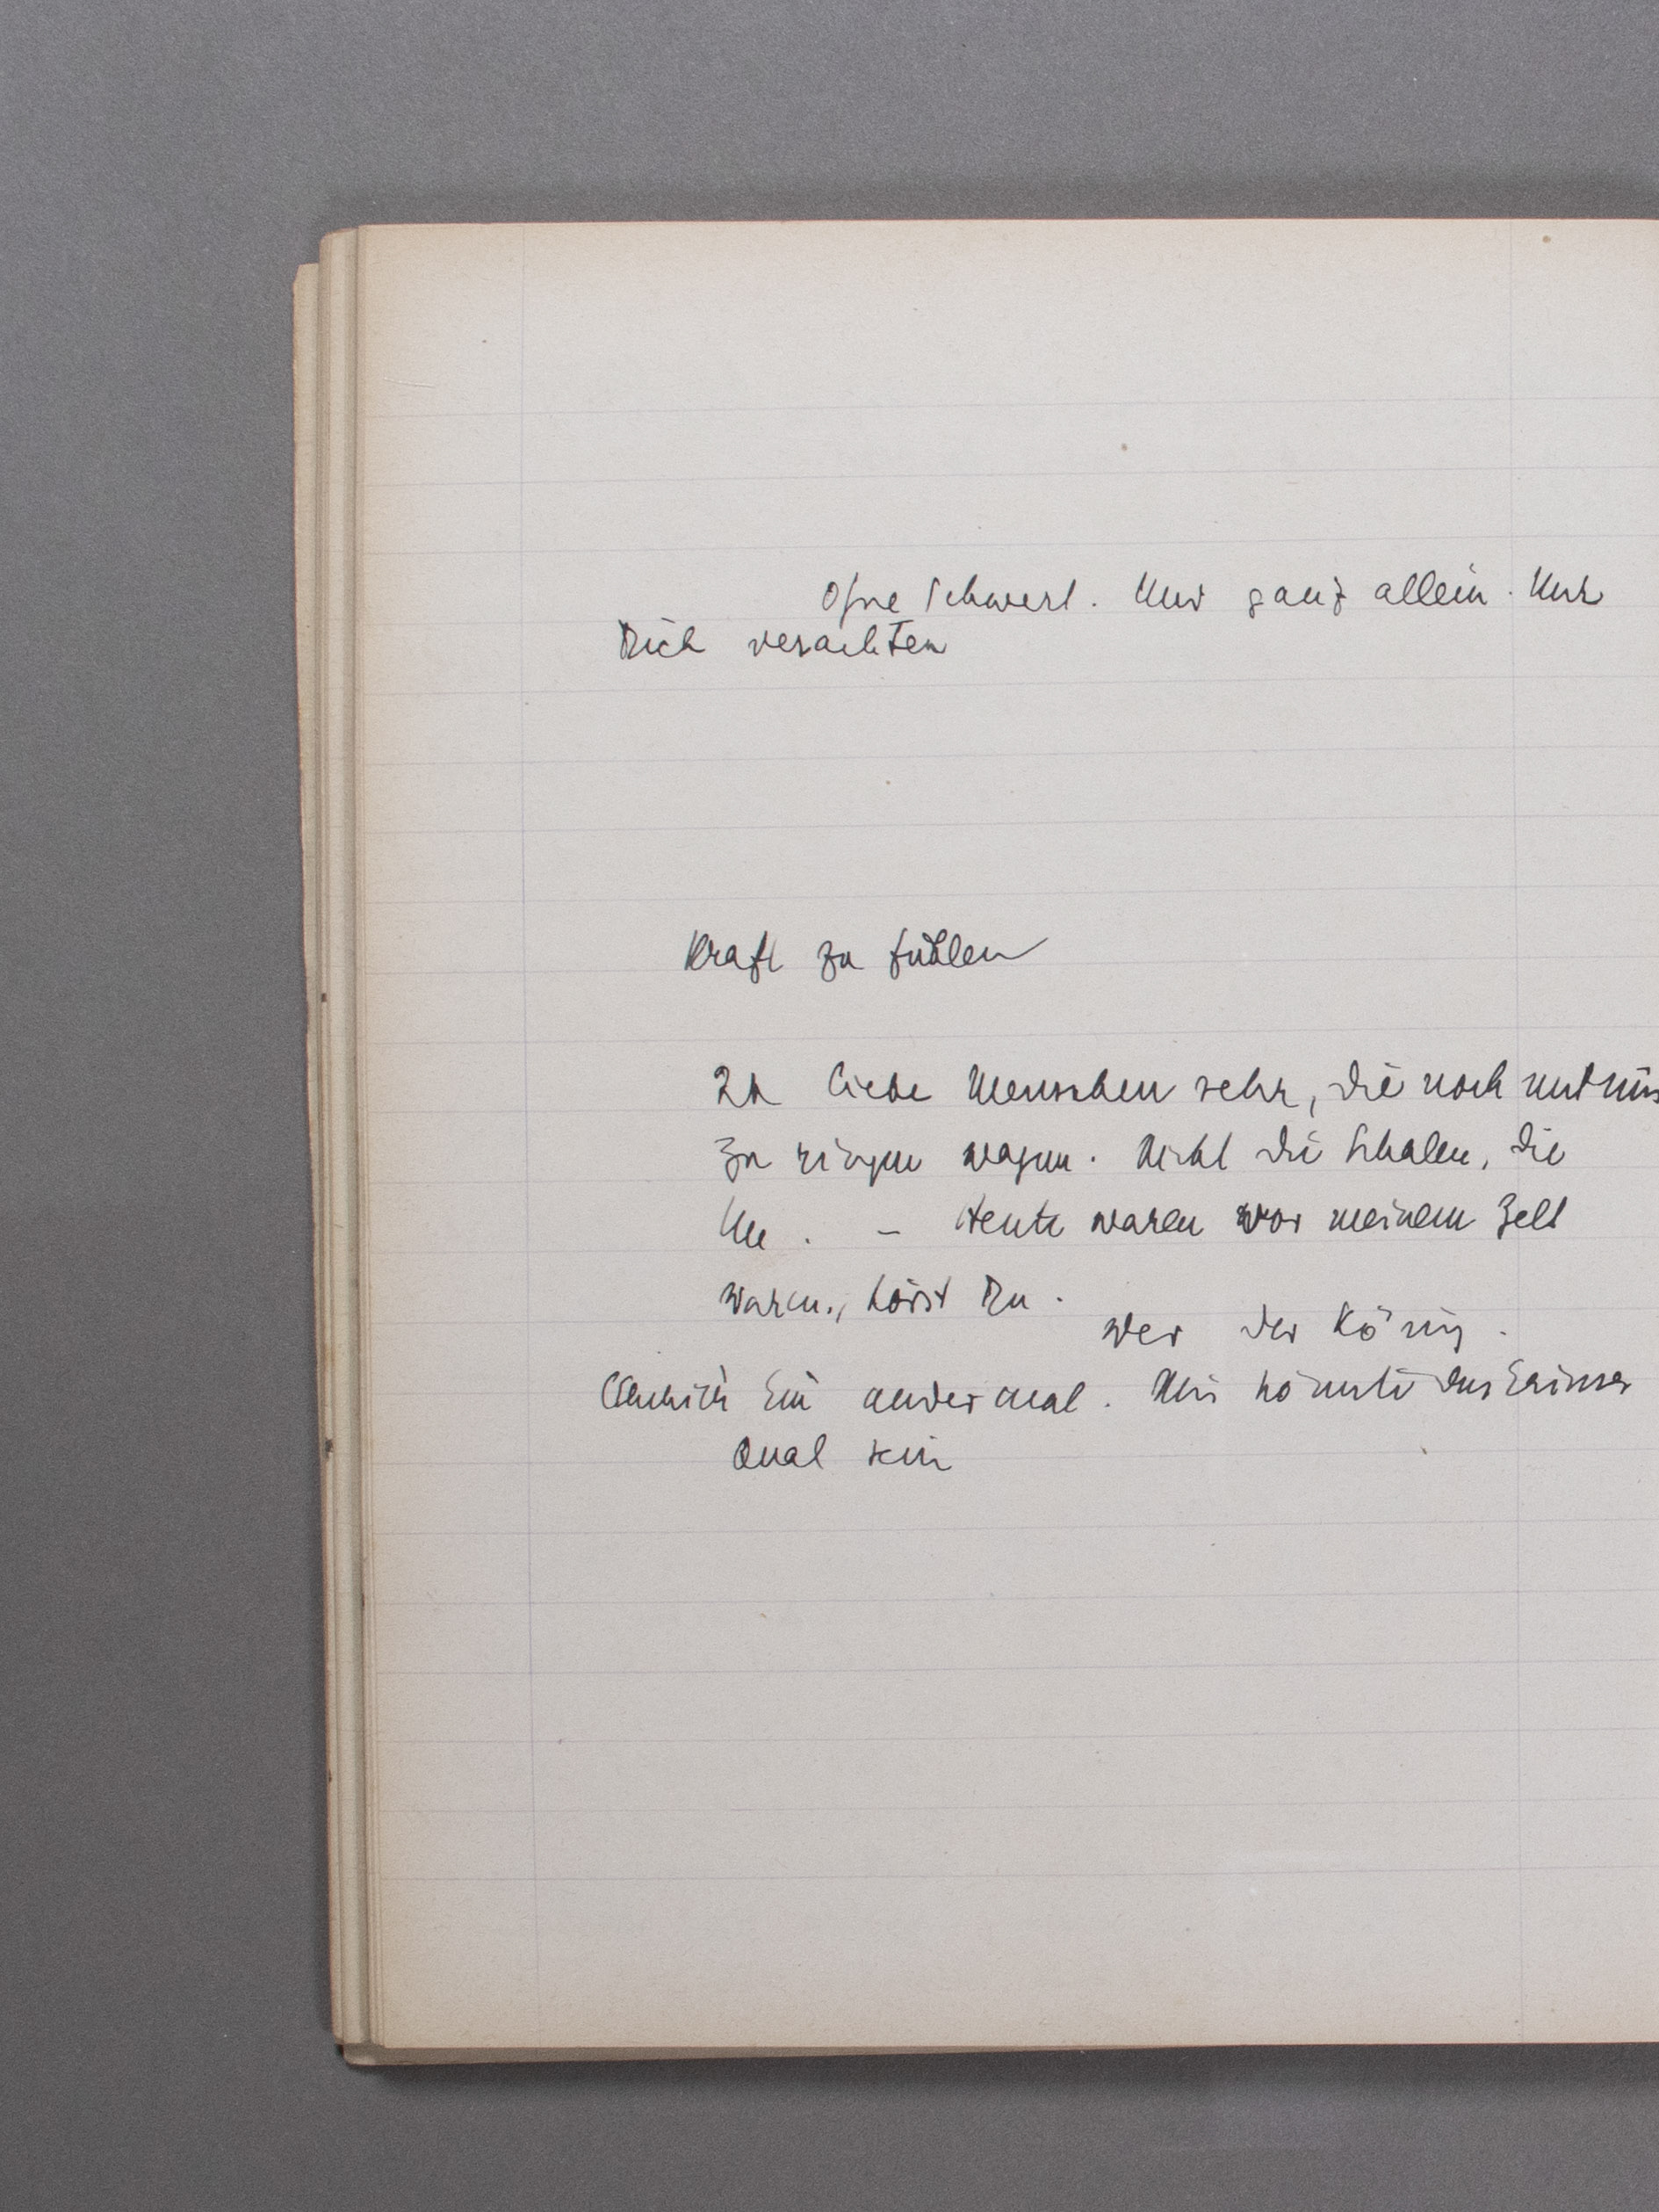 Ohne Schwert. Nur ganz allein. Nur
Dich verachten
Kraft zu fühlen
Ich liebe Menschen sehr, die noch mit uns
zu ringen wagen. Nicht die Schalen, die
. – Heute waren vor meinem Zelt
waren, hörst Du.
wer der König.
Ein andermal. Mir könnte das
Qual sein